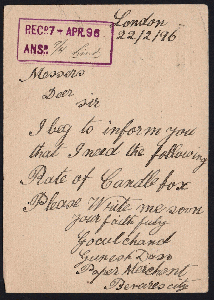 London
22/2/96
REC'D 7 - APR. 96
ANSD
Messers
Deer
sir
I beg to inform you
that I need the following
Rate of Candle fox
Please Write me soon
your faithfuly
Goculchand
Gunesh Dass
Paper Merchant
Benares city